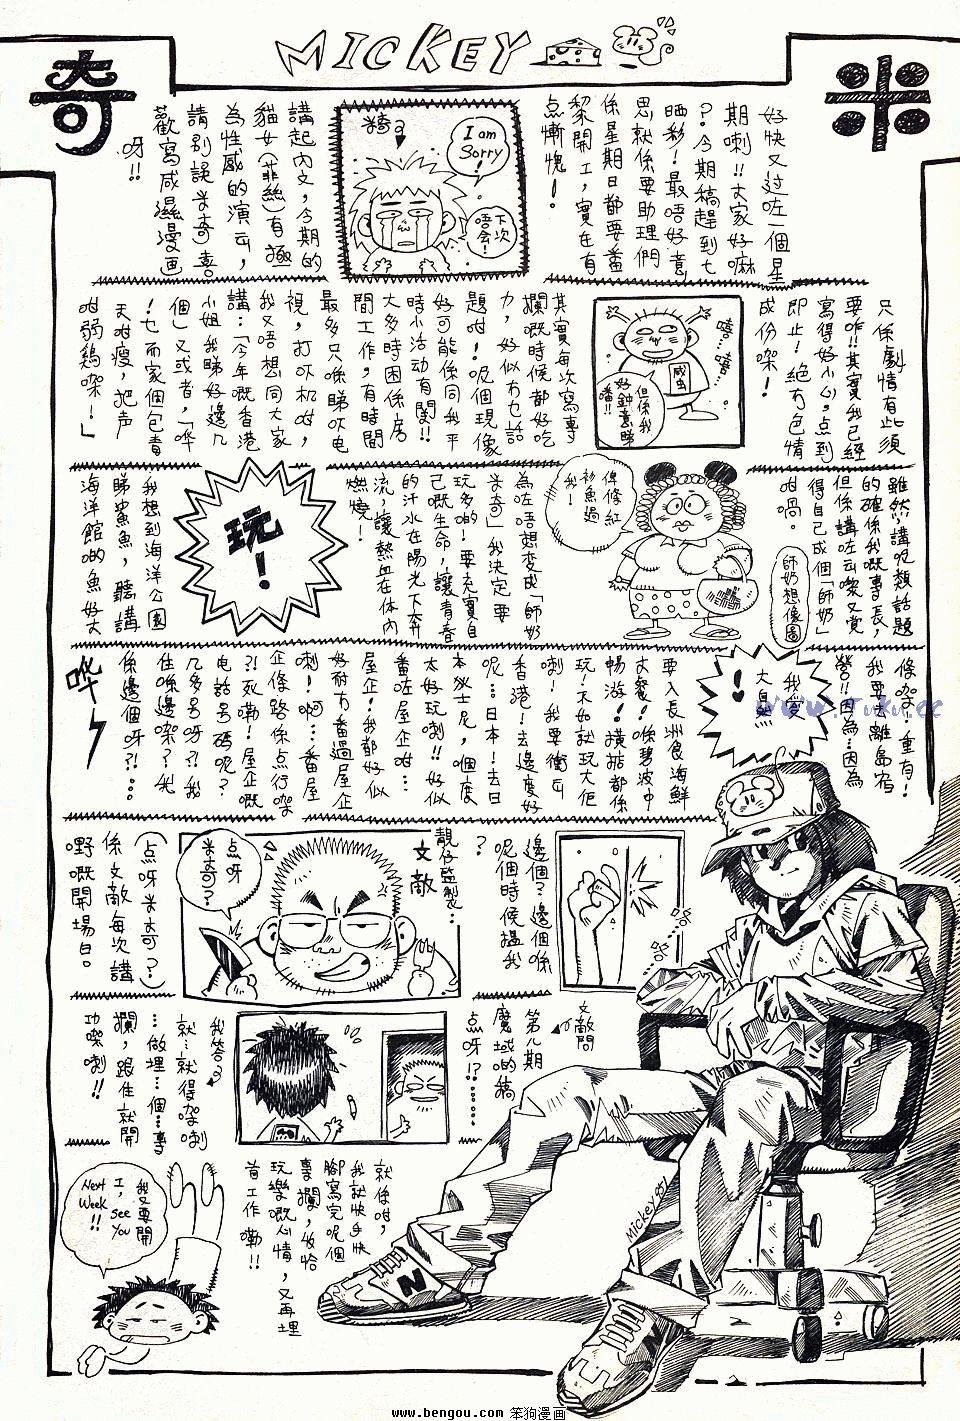 MICKEY
米奇
好快又过咗一個星
期喇!!大家好嘛
?今期稿趕到七
晒彩!最唔好意
思就係要助理們
係星期日都要番
黎開工,實在有
点慚愧!
米奇
I am
Sorry!
下次
唔会!
講起內文,今期的
貓女(菲絲)有極
為性感的演出,
請別誤米奇喜
歡寫咸濕漫画
呀!!
只係劇情有此須
要咋!!其實我已經
寫得好小心,点到
即止!絕冇色情
成份㗎!
嘻…嘻…
咸虫
但係我
好鐘意睇
噃!!
其實每次寫專
欄嘅時候都好吃
力,好似冇乜話
題咁!呢個現像
好可能係同我平
時小活动有関!!
大多時困係房
間工作,有時間
最多只喺睇吓电
視,打吓机咁,
我又唔想同大家
講:「今年嘅香港
小姐我睇好邊几
個」又或者,「嘩
!乜而家個包青
天咁瘦,把声
咁弱鷄㗎!」
雖然,講呢類話題
的確係我嘅專長,
但係講咗出嚟又覚
得自己成個「師奶」
咁喎。
師奶想像圖
俾條紅
衫魚過
我!
為咗唔想变成「師奶
米奇」我決定要
玩多啲!要充實自
己嘅生命,讓青春
的汗水在陽光下奔
流,讓熱血在体內
燃燒!
玩!
我想到海洋公園
睇鯊魚,聽講
海洋館啲魚好大
條㗎!重有!
我要去離島宿
營!!因為…因為
我愛
大自然
!
要入長洲食海鮮
大餐!喺碧波中
暢游!橫掂都係
玩!不如就玩大佢
喇!我要衝出
香港!去邊度好
呢…日本!去日
本狄士尼,個度
太好玩喇!!好似
番咗屋企咁…
屋企!我都好似
好耐冇番過屋企
喇!啊…番屋
企條路係点行㗎
?!死嘞!屋企嘅
电話号碼呢?
几多号呀?!我
住係邊㗎?我
係邊個呀?!…
嘩
邊個?邊個喺
呢個時候搵我
?
咯…咯…
靚仔監製…
文敵
点呀
米奇?
(点呀米奇?)
係文敵每次講
嘢嘅開場白。
文敵問
第九期
魔域的稿
点呀!?……
我答
就…就得㗎喇
…做埋…個…專
欄,跟住就開
功㗎喇!!
就係咁,
我就快手快
腳寫完呢個
專欄,收拾
玩樂嘅心情,又再埋
首工作嘞!!
我又要開
工,see
You
Next
Week
!!
Mickey 95'
N
www.Tuku.cc
www.bengou.com 笨狗漫画